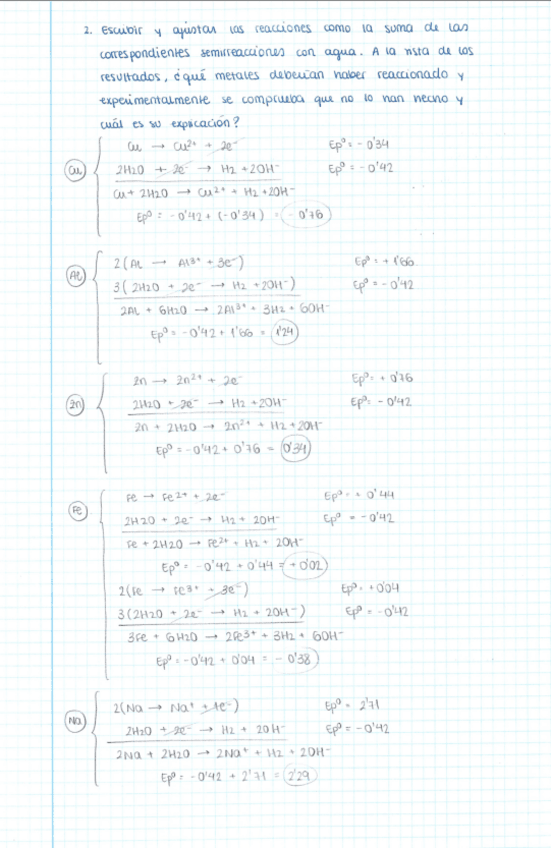 2. Escribir y ajustar las reacciones como la suma de las
correspondientes semirreacciones con agua. A la vista de los
resultados, ¿qué metales deberían haber reaccionado y
experimentalmente se comprueba que no lo han hecho y
cuál es su explicación?
Cu
Cu → Cu²⁺ + 2e⁻ Epº = - 0'34
2H2O + 2e⁻ → H2 + 2OH⁻ Epº = -0'42
Cu + 2H2O → Cu²⁺ + H2 + 2OH⁻
Epº = -0'42 + (-0'34) = -0'76
Al
2(Al → Al³⁺ + 3e⁻) Epº = + 1'66
3(2H2O + 2e⁻ → H2 + 2OH⁻) Epº = -0'42
2Al + 6H2O → 2Al³⁺ + 3H2 + 6OH⁻
Epº = -0'42 + 1'66 = 1'24
Zn
Zn → Zn²⁺ + 2e⁻ Epº = + 0'76
2H2O + 2e⁻ → H2 + 2OH⁻ Epº = -0'42
Zn + 2H2O → Zn²⁺ + H2 + 2OH⁻
Epº = -0'42 + 0'76 = 0'34
Fe
Fe → Fe²⁺ + 2e⁻ Epº = + 0'44
2H2O + 2e⁻ → H2 + 2OH⁻ Epº = -0'42
Fe + 2H2O → Fe²⁺ + H2 + 2OH⁻
Epº = -0'42 + 0'44 = +0'02
2(Fe → Fe³⁺ + 3e⁻) Epº = +0'04
3(2H2O + 2e⁻ → H2 + 2OH⁻) Epº = -0'42
3Fe + 6H2O → 2Fe³⁺ + 3H2 + 6OH⁻
Epº = -0'42 + 0'04 = -0'38
Na
2(Na → Na⁺ + 1e⁻) Epº = 2'71
2H2O + 2e⁻ → H2 + 2OH⁻ Epº = -0'42
2Na + 2H2O → 2Na⁺ + H2 + 2OH⁻
Epº = -0'42 + 2'71 = 2'29